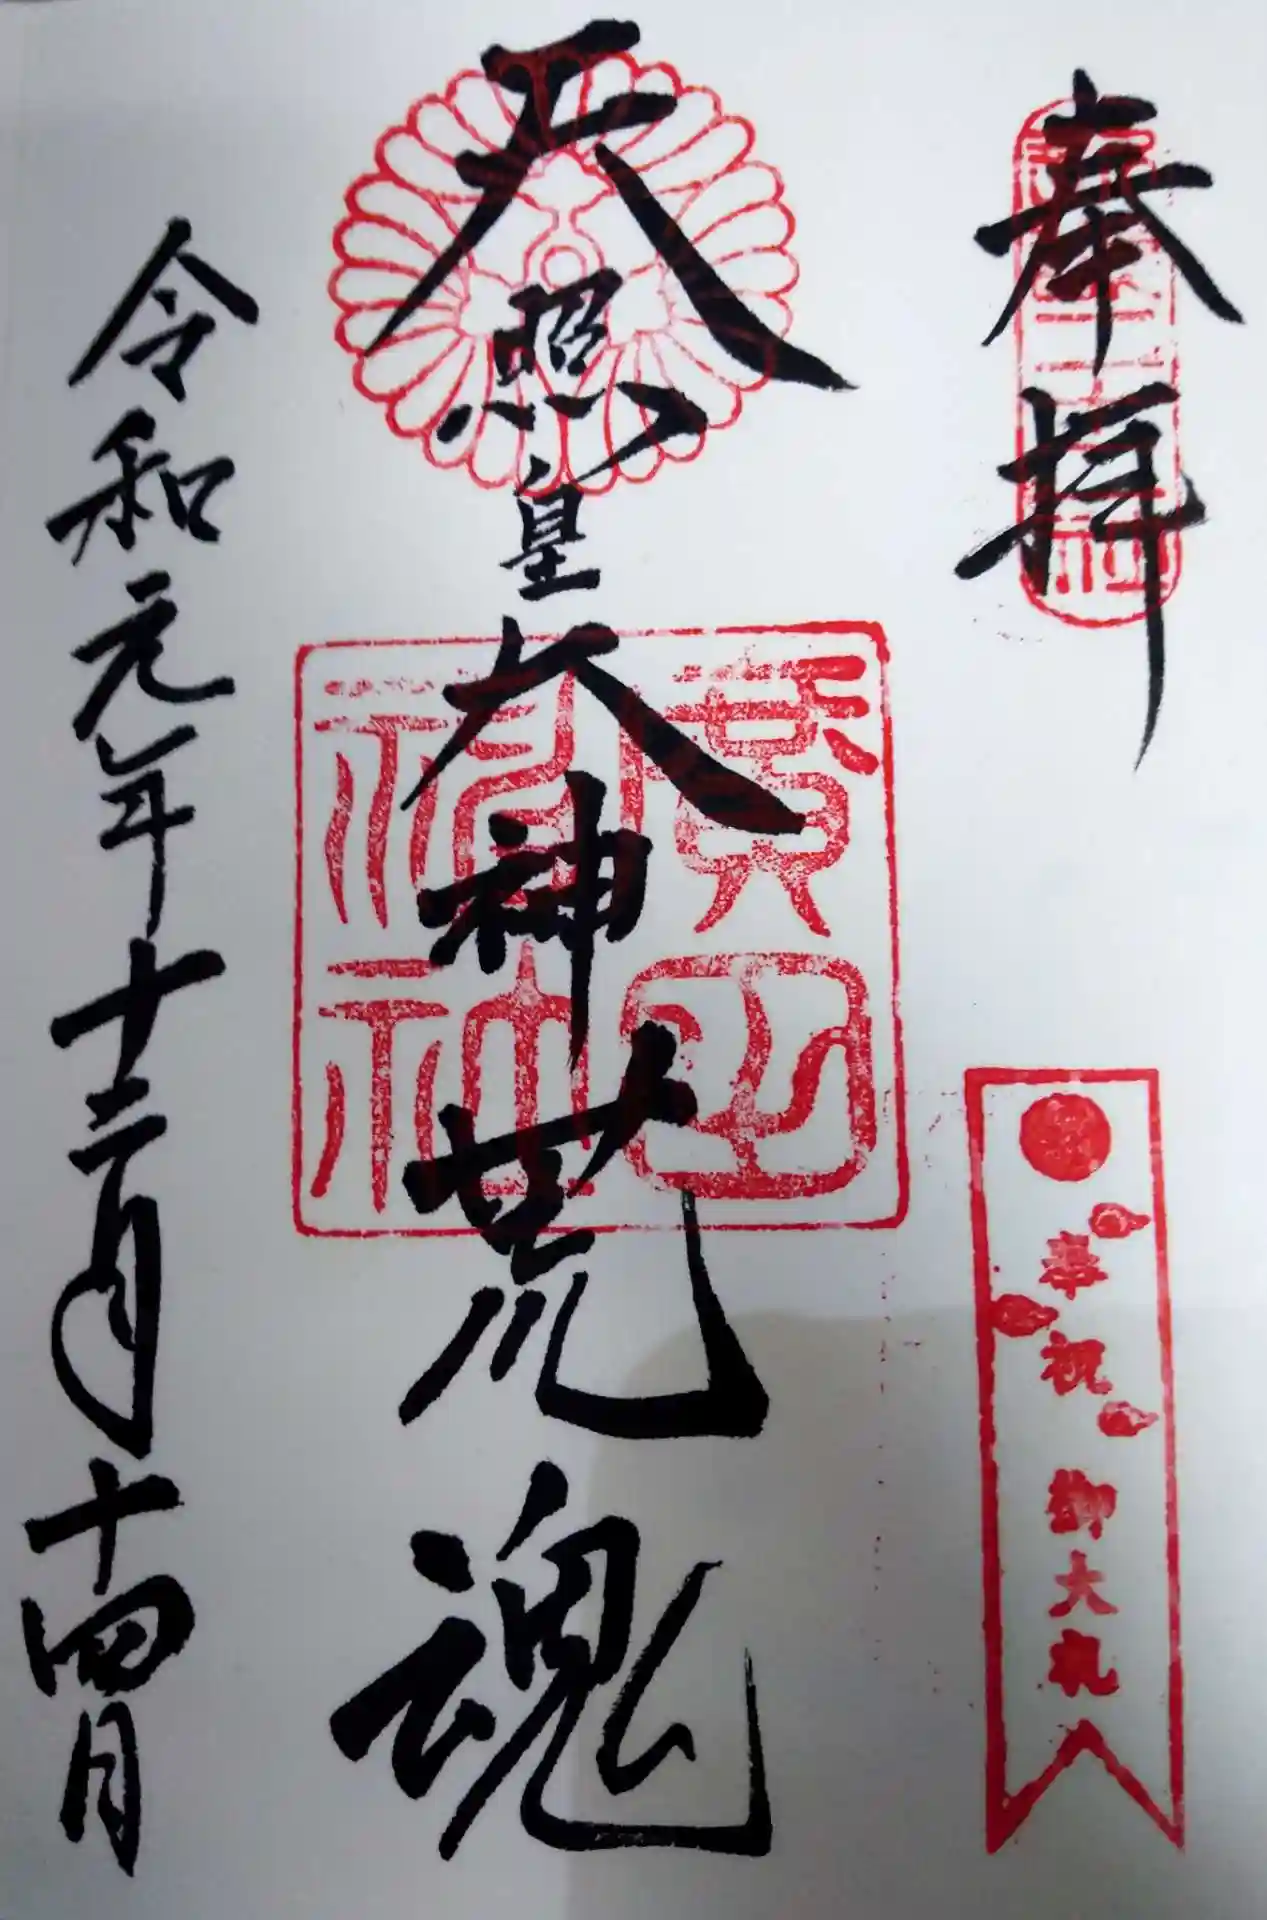 奉拝
奉祝 御大礼
天照皇大神荒魂
廣田神社
令和元年十二月十四日